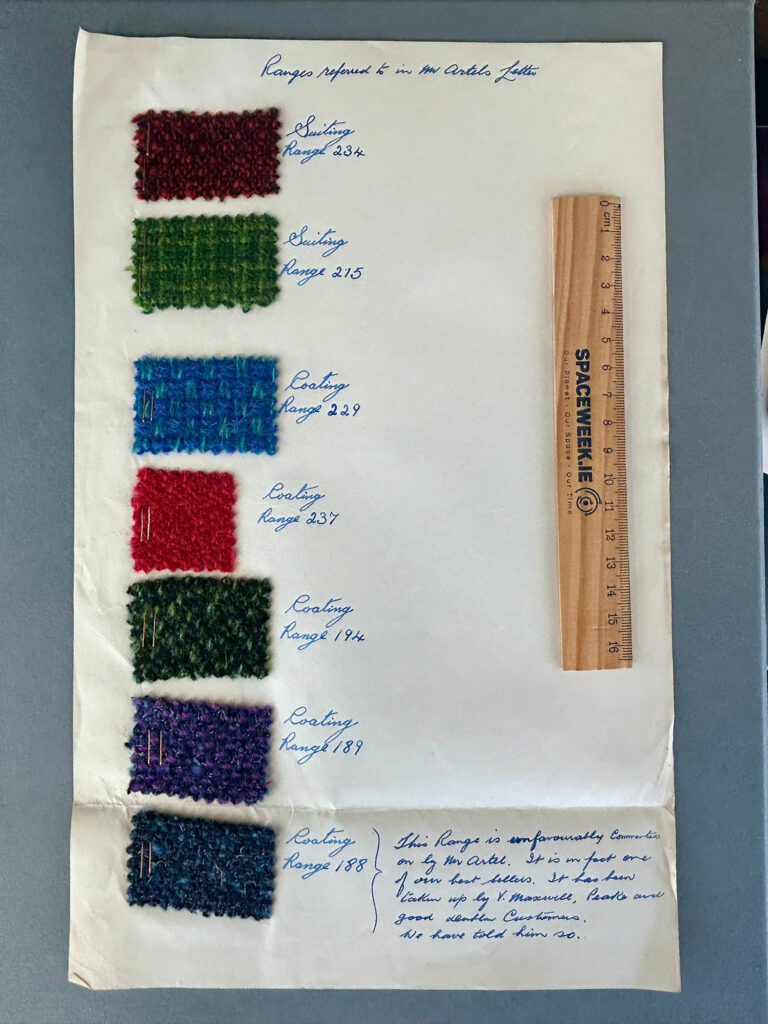 Ranges referred to in Mr Artels Letter
Suiting
Range 234
Suiting
Range 215
Coating
Range 229
Coating
Range 237
Coating
Range 194
Coating
Range 189
Coating
Range 188
This Range is unfavourably Commented
on by Mr Artel. It is in fact one
of our best sellers. It has been
taken up by Y. Maxwell, Peake and
good Customers.
We have told him so.
0 cm 1 2 3 4 5 6 7 8 9 10 11 12 13 14 15 16
SPACEWEEK.IE
Our Planet · Our Space · Our Time